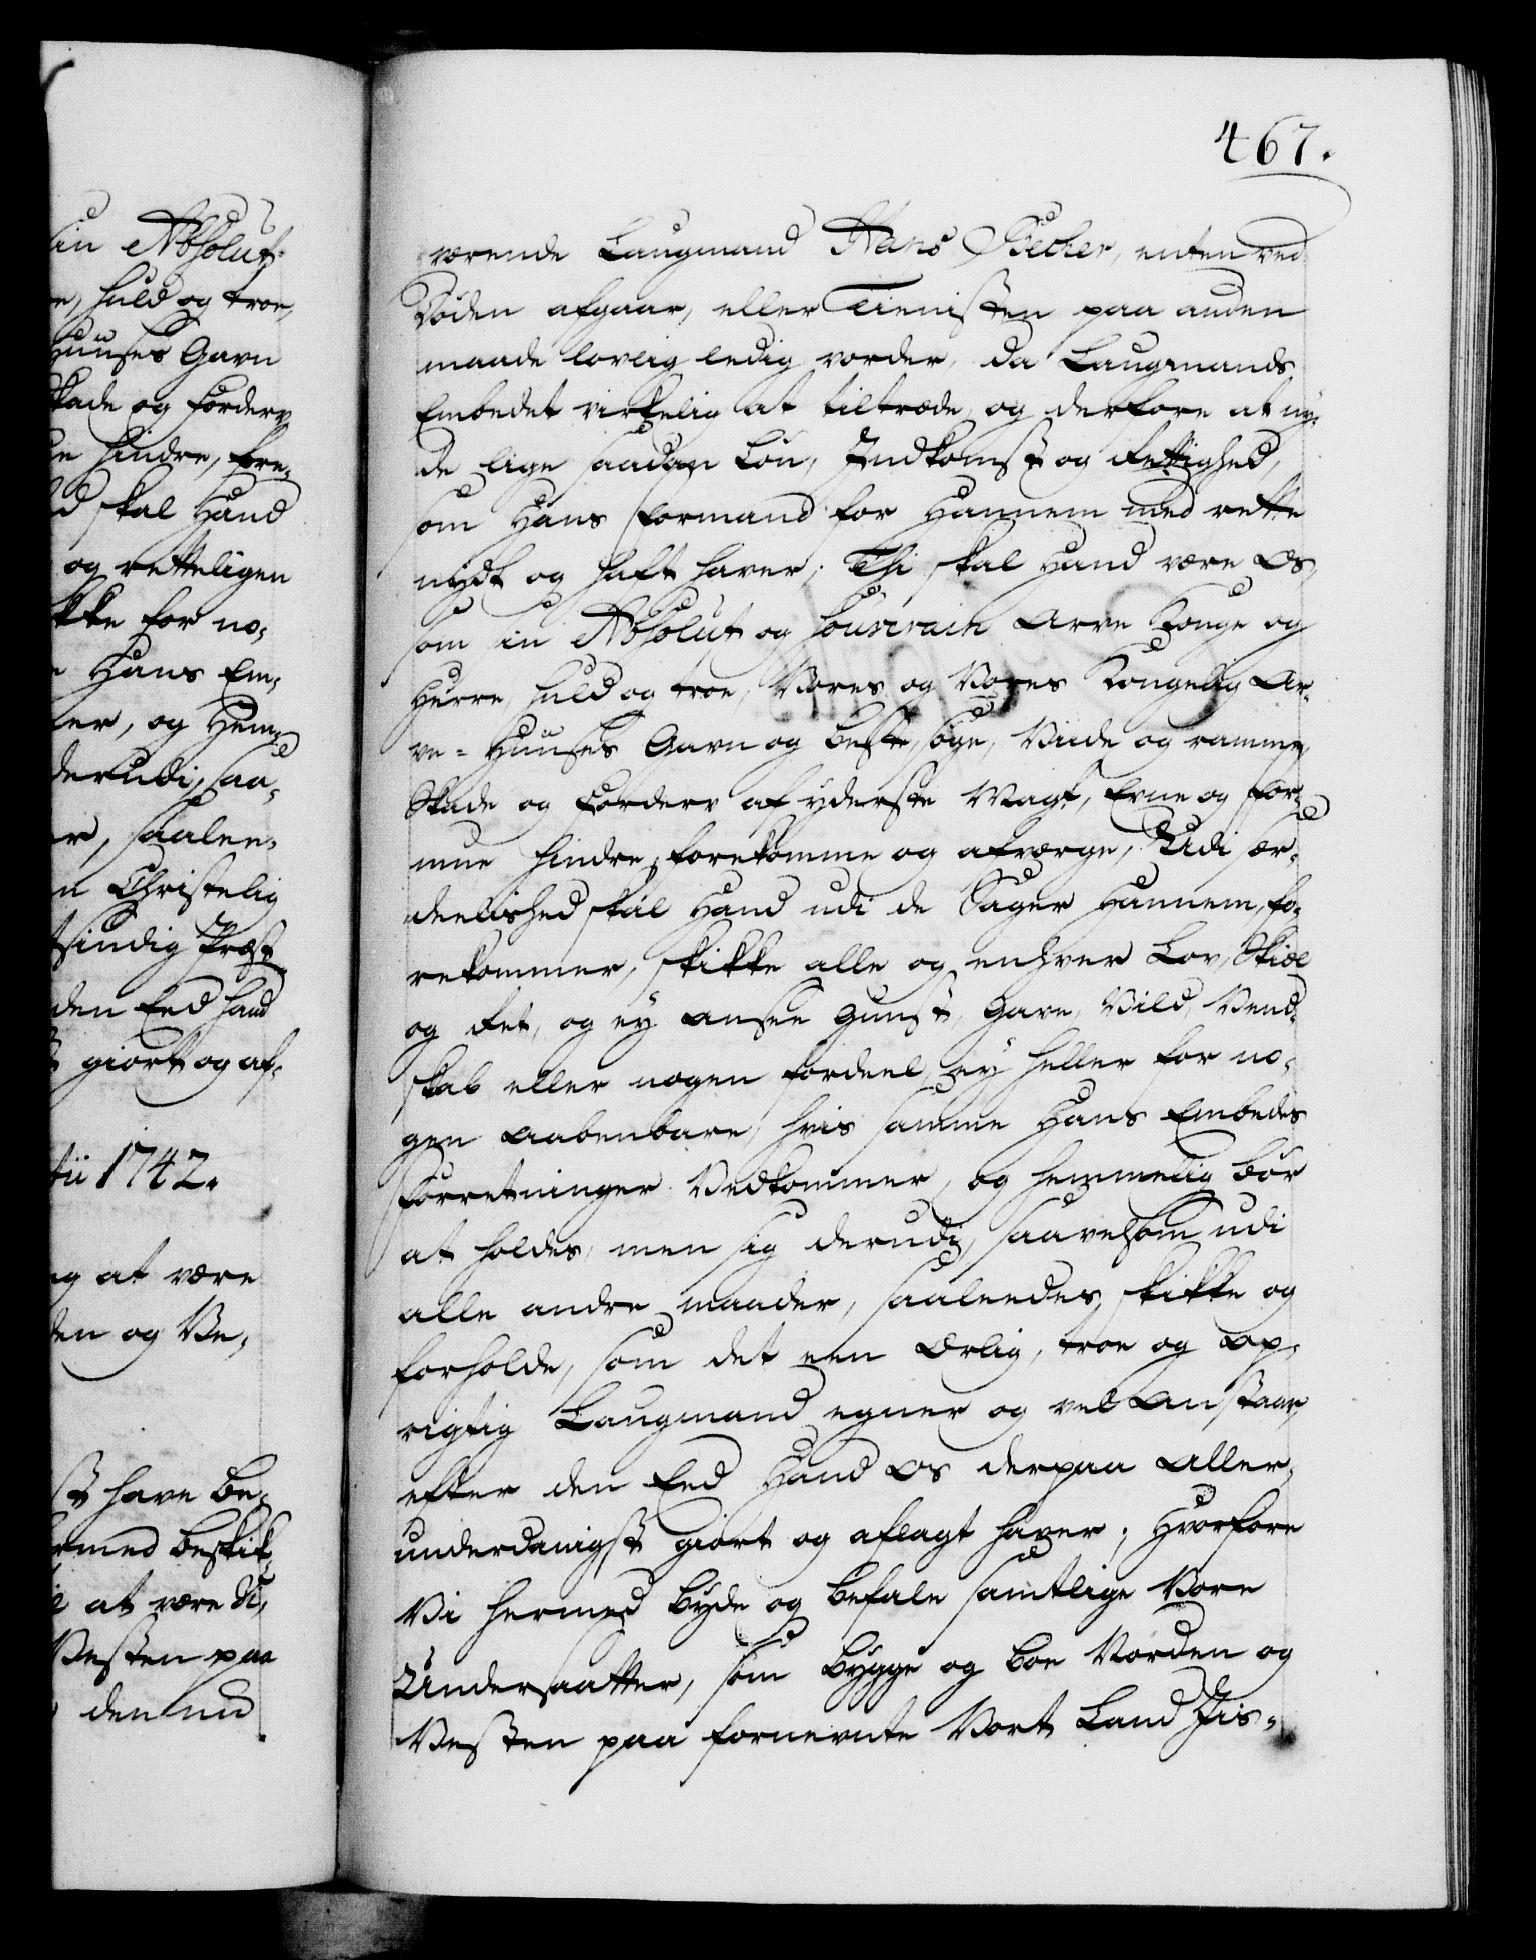 sin Absolut
e, huld og troe,
Huuses Gavn
Skade og Forderv
ne hindre, fore-
d skal Hand
og retteligen
ikke for no-
e Hans Em-
er, og Hem-
derudi, saa-
er, saalee-
n Christelig
sindig Præst
den Eed Hand
giort og af-
tii 1742.
ig at være
den og Ve-
st have be-
rmed beskik-
at være Vi-
Vesten paa
den nu
467.
værende Laugmand Hans Becker, enten ved
Døden afgaar, eller Tienisten paa anden
maade lovlig ledig vorder, da Laugmands
Embedet virkelig at tiltræde, og derfore at ny-
de lige saadan Løn, Indkomst og Rettighed,
som Hans Formand for Hannem med rette
nydt og haft haver; Thi skal Hand være Os,
som sin Absolut og Souverain Arve Konge og
Herre, huld og troe, Vores og Vores Kongelig Ar-
ve-Huuses Gavn og beste, søge, Viide og ramme,
Skade og Forderv af yderste Magt, Evne og For-
mue hindre, forekomme og afværge, Udi sær-
deelished skal Hand udi de Sager Hannem, fo-
rekommer, skikke alle og enhver Lov, Skiel
og Ret, og ey ansee Gunst, Gave, Vild, Vend-
skab eller nogen fordeel, ey heller for no-
gen aabenbare, hvis samme Hans Embedes
Forretninger Vedkommer, og hemmelig bør
at holdes, men sig derudi, saavelsom udi
alle andre maader, saaleedes skikke og
forholde, som det een Ærlig, troe og op-
rigtig Laugmand egner og vel anstaar,
efter den Eed Hand Os derpaa aller-
underdanigst giort og aflagt haver; Hvorfore
Vi hermed byde og befale samtlige Vore
Undersaatter, som bygge og boe Norden og
Vesten paa fornevnte Vort Land Iis-